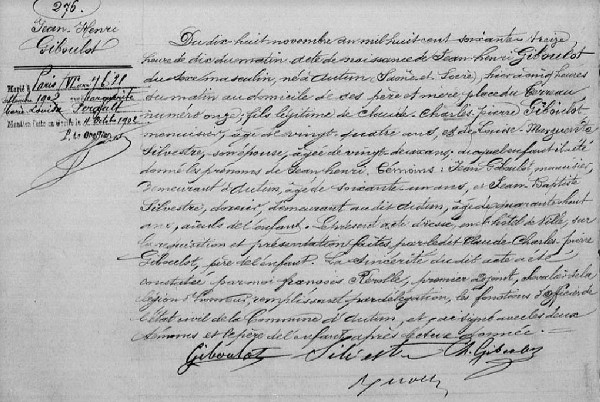 276.
Jean Henri
Giboulot
Marié à Paris, VIe
1902
Marguerite
Marie
Mention faite au greffe le 4 Octobre 1902
P. le Greffier
Du dix huit novembre an mil huit cent soixante treize
heure de dix du matin acte de naissance de Jean henri Giboulot
du sexe masculin, né à Autun, Saône et Loire, hier cinq heures
du matin au domicile de ses père et mère place du Terreau
numéro onze, fils légitime de Claude Charles pierre Giboulot
menuisier, âgé de vingt quatre ans, et de Louise Marguerite
Silvestre, son épouse, âgée de vingt deux ans, auquel enfant il a été
donné les prénoms de Jean henri. Témoins : Jean Giboulot, menuisier,
demeurant à Autun, âgé de soixante un ans, et Jean Baptiste
Silvestre, doreur, demeurant audit Autun, âgé de quarante huit
ans, aïeuls de l'enfant. Le présent acte dressé en l'hôtel de Ville, sur
la déclaration et présentation faites par ledit Claude Charles pierre
Giboulot, père de l'enfant. La sincérité dudit acte a été
constatée par moi françois Rérolle, premier adjoint, chevalier de la
légion d'honneur, remplissant par délégation, les fonctions d'officier de
l'état civil de la Commune d'Autun, et j'ai signé avec les deux
témoins et le père de l'enfant après lecture donnée.
Giboulot Silvestre Ch. Giboulot